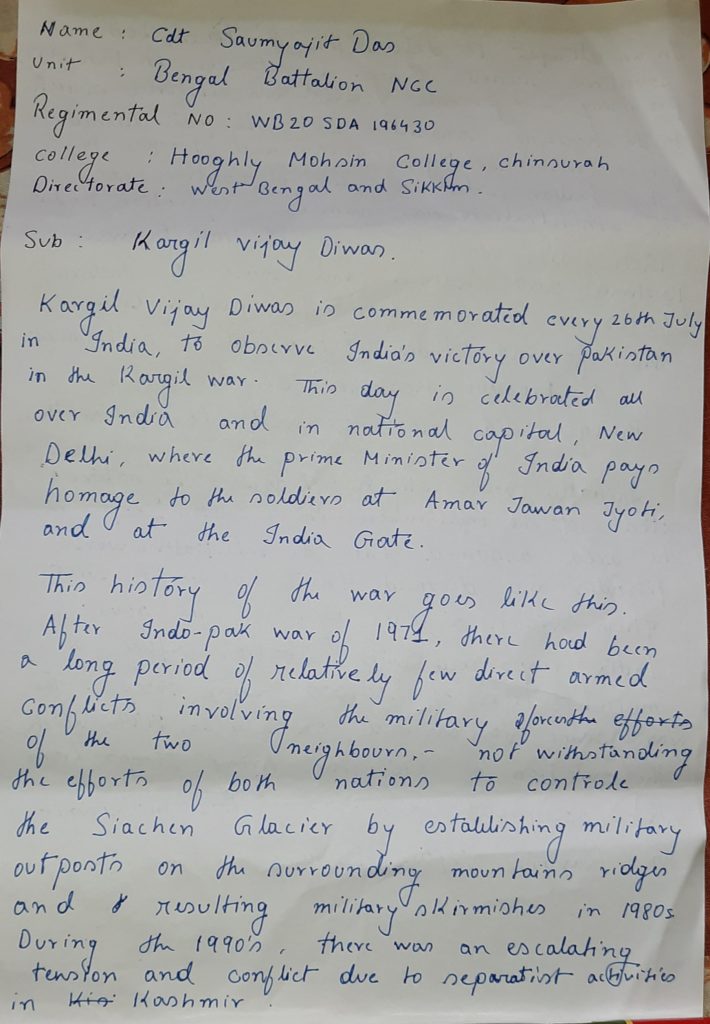 Name : Cdt Saumyajit Das
Unit : Bengal Battalion NCC
Regimental NO : WB20 SDA 196430
college : Hooghly Mohsin College, chinsurah
Directorate : West Bengal and Sikkim.
Sub : Kargil vijay Diwas.
Kargil Vijay Diwas is commemorated every 26th July
in India, to observe India's victory over pakistan
in the Kargil war. This day is celebrated all
over India and in national capital, New
Delhi, where the prime Minister of India pays
homage to the soldiers at Amar Jawan Jyoti,
and at the India Gate.
This history of the war goes like this.
After Indo-pak war of 1971, there had been
a long period of relatively few direct armed
conflicts involving the military forces the efforts
of the two neighbours, - not withstanding
the efforts of both nations to controle
the Siachen Glacier by establishing military
outposts on the surrounding mountains ridges
and resulting military skirmishes in 1980s
During the 1990's, there was an escalating
tension and conflict due to separatist activities
in Kashmir.